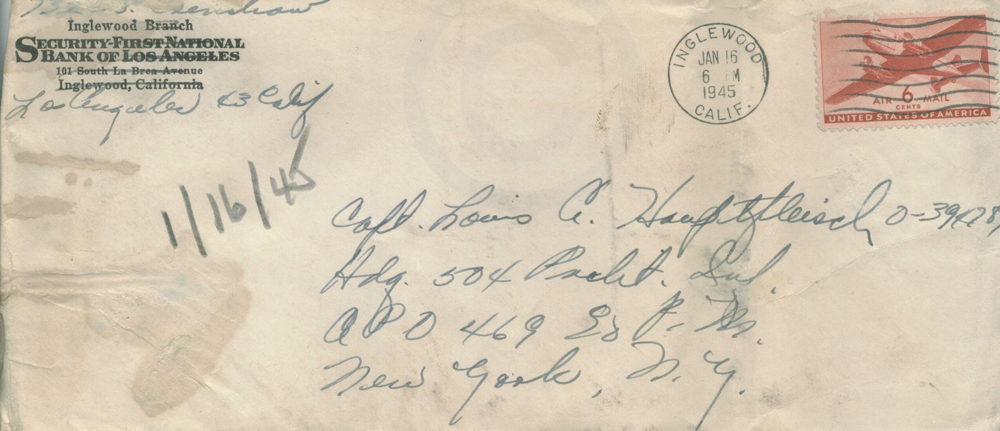 Inglewood Branch
SECURITY-FIRST NATIONAL
BANK OF LOS ANGELES
101 South La Brea Avenue
Inglewood, California
Los Angeles 43 Calif
1/16/45
INGLEWOOD
JAN 16
6 M
1945
CALIF.
AIR 6 MAIL
CENTS
UNITED STATES OF AMERICA
Capt. Louis A. Hauptfleisch
Hdq. 504 Pracht. Inf.
A P O 469 P. M.
New York, N. Y.